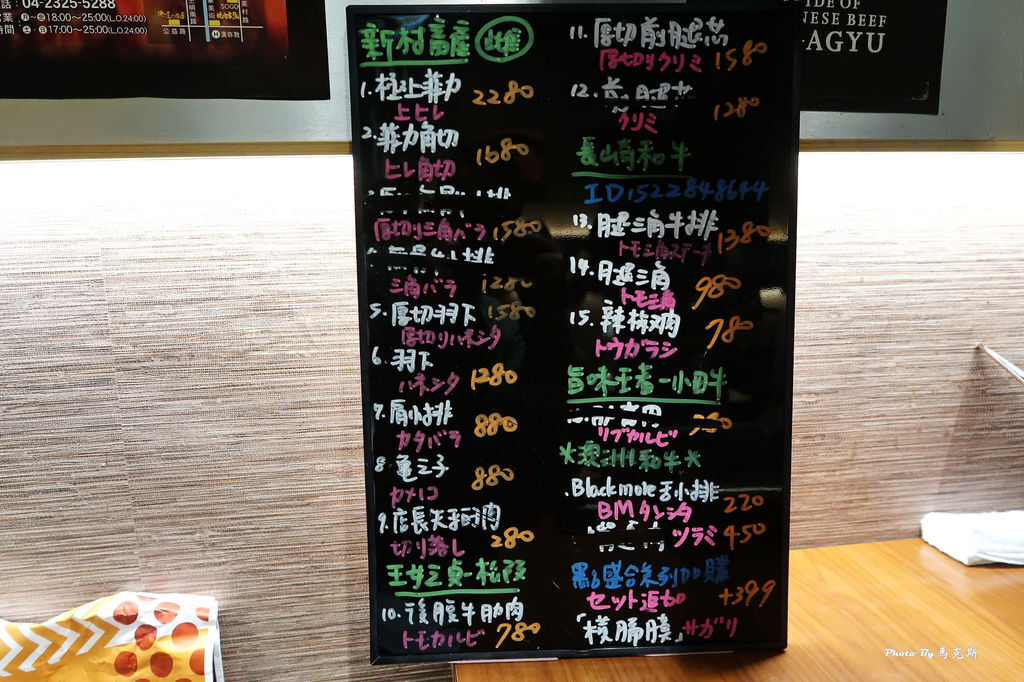 04-2325-5288
18:00~25:00(L.O.24:00)
17:00~25:00(L.O.24:00)
公益路
SOGO
美村路
漢弥敦
DE OF
NESE BEEF
AGYU
新村畜産
1. 極上菲力 2280
上ヒレ
2. 菲力角切 1680
ヒレ角切
厚切り三角バラ 1580
三角バラ 1280
5. 厚切羽下 1580
厚切りハネシタ
6. 羽下
ハネシタ 1280
7. 肩小排 880
カタバラ
8 龜三子 880
カメノコ
9. 店長天殺的肉
切り落し 280
10. 後腹牛肋肉
トモカルビ 780
11. 厚切前腿芯
厚切りクリミ 1580
12.
クリミ 1280
長崎和牛
ID:1522848644
13. 腿三角牛排 1380
トモ三角ステーキ
14. 腿三角 980
トモ三角
15. 辣椒肉 780
トウガラシ
旨味王者-小田牛
リブカルビ
*澳洲和牛*
.Blackmore舌小排
BMタンシタ 220
ツラミ 450
點盛合系列加購
セット追加 +399
「橫膈膜」サガリ
Photo By 馬克斯